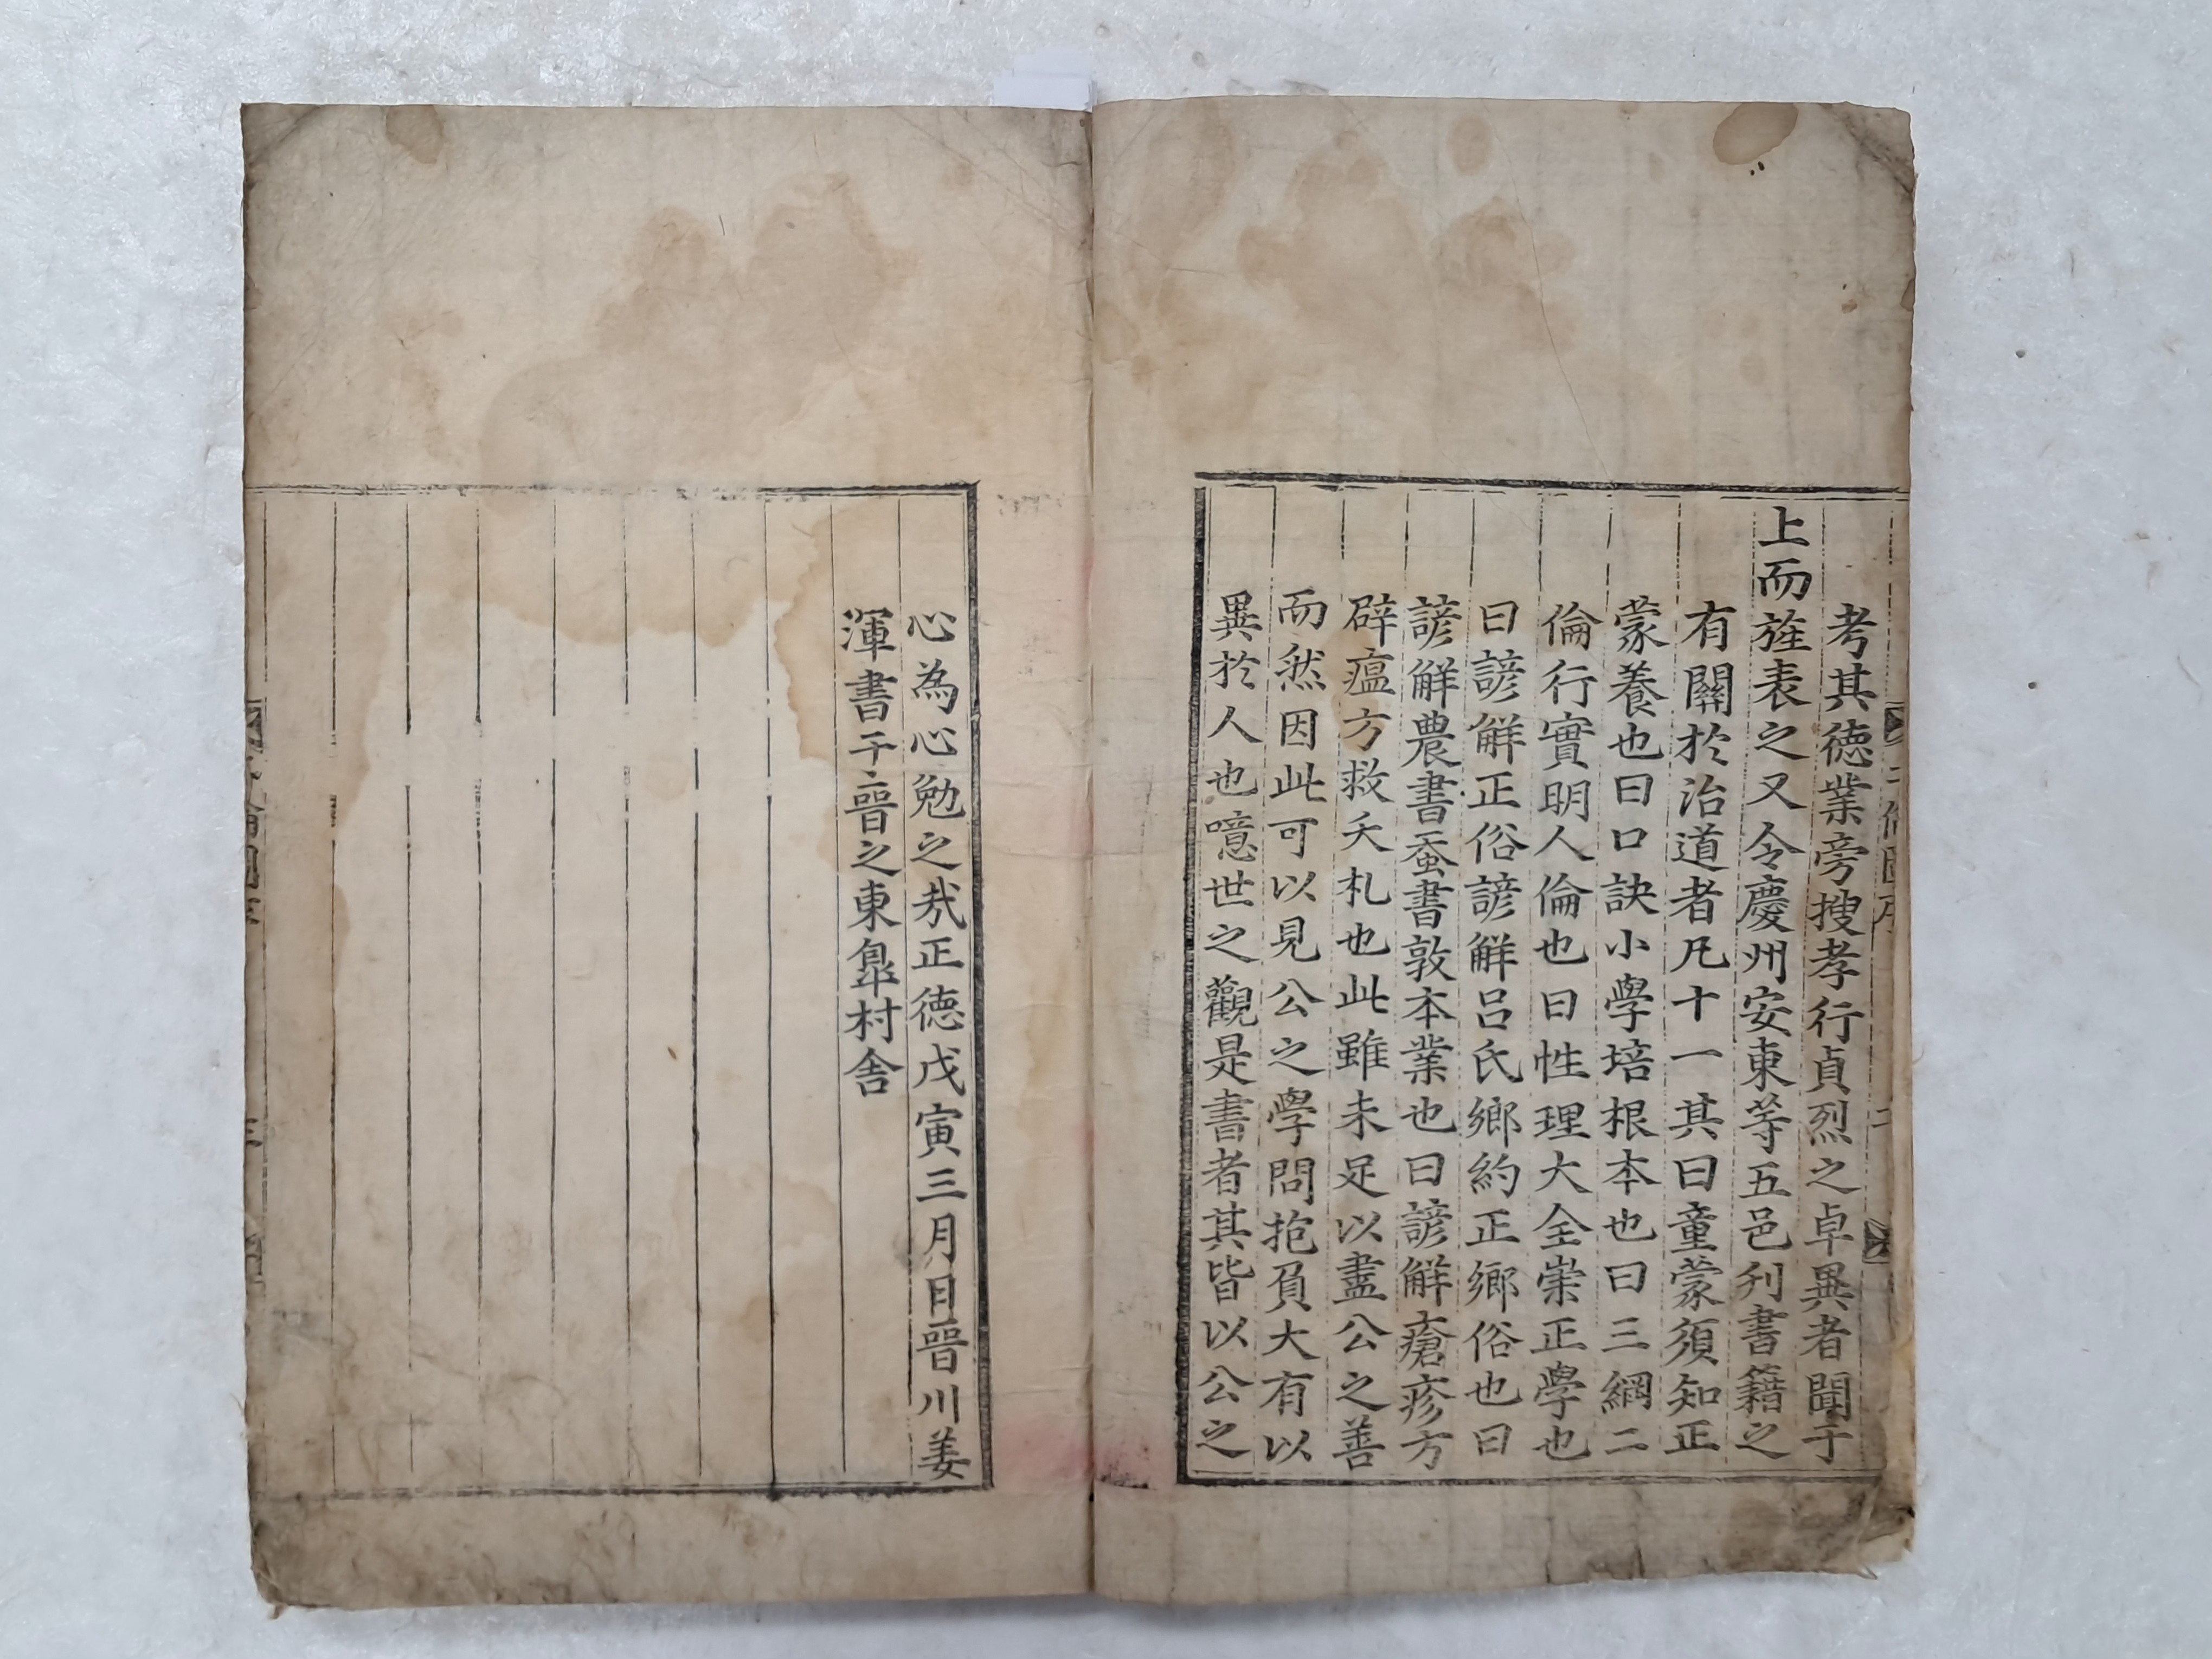 考其德業旁搜孝行貞烈之卓異者聞于
上而旌表之又令慶州安東等五邑刋書籍之
有關於治道者凡十一其曰童蒙須知正
蒙養也曰口訣小學培根本也曰三綱二
倫行實明人倫也曰性理大全崇正學也
曰諺觧正俗諺觧呂氏鄉約正鄉俗也曰
諺觧農書蚕書敦本業也曰諺觧瘡疹方
辟瘟方救夭札也此雖未足以盡公之善
而然因此可以見公之學問抱負大有以
異於人也噫世之觀是書者其皆以公之
心為心勉之㦲正德戊寅三月日晉川姜
渾書于晉之東皐村舍